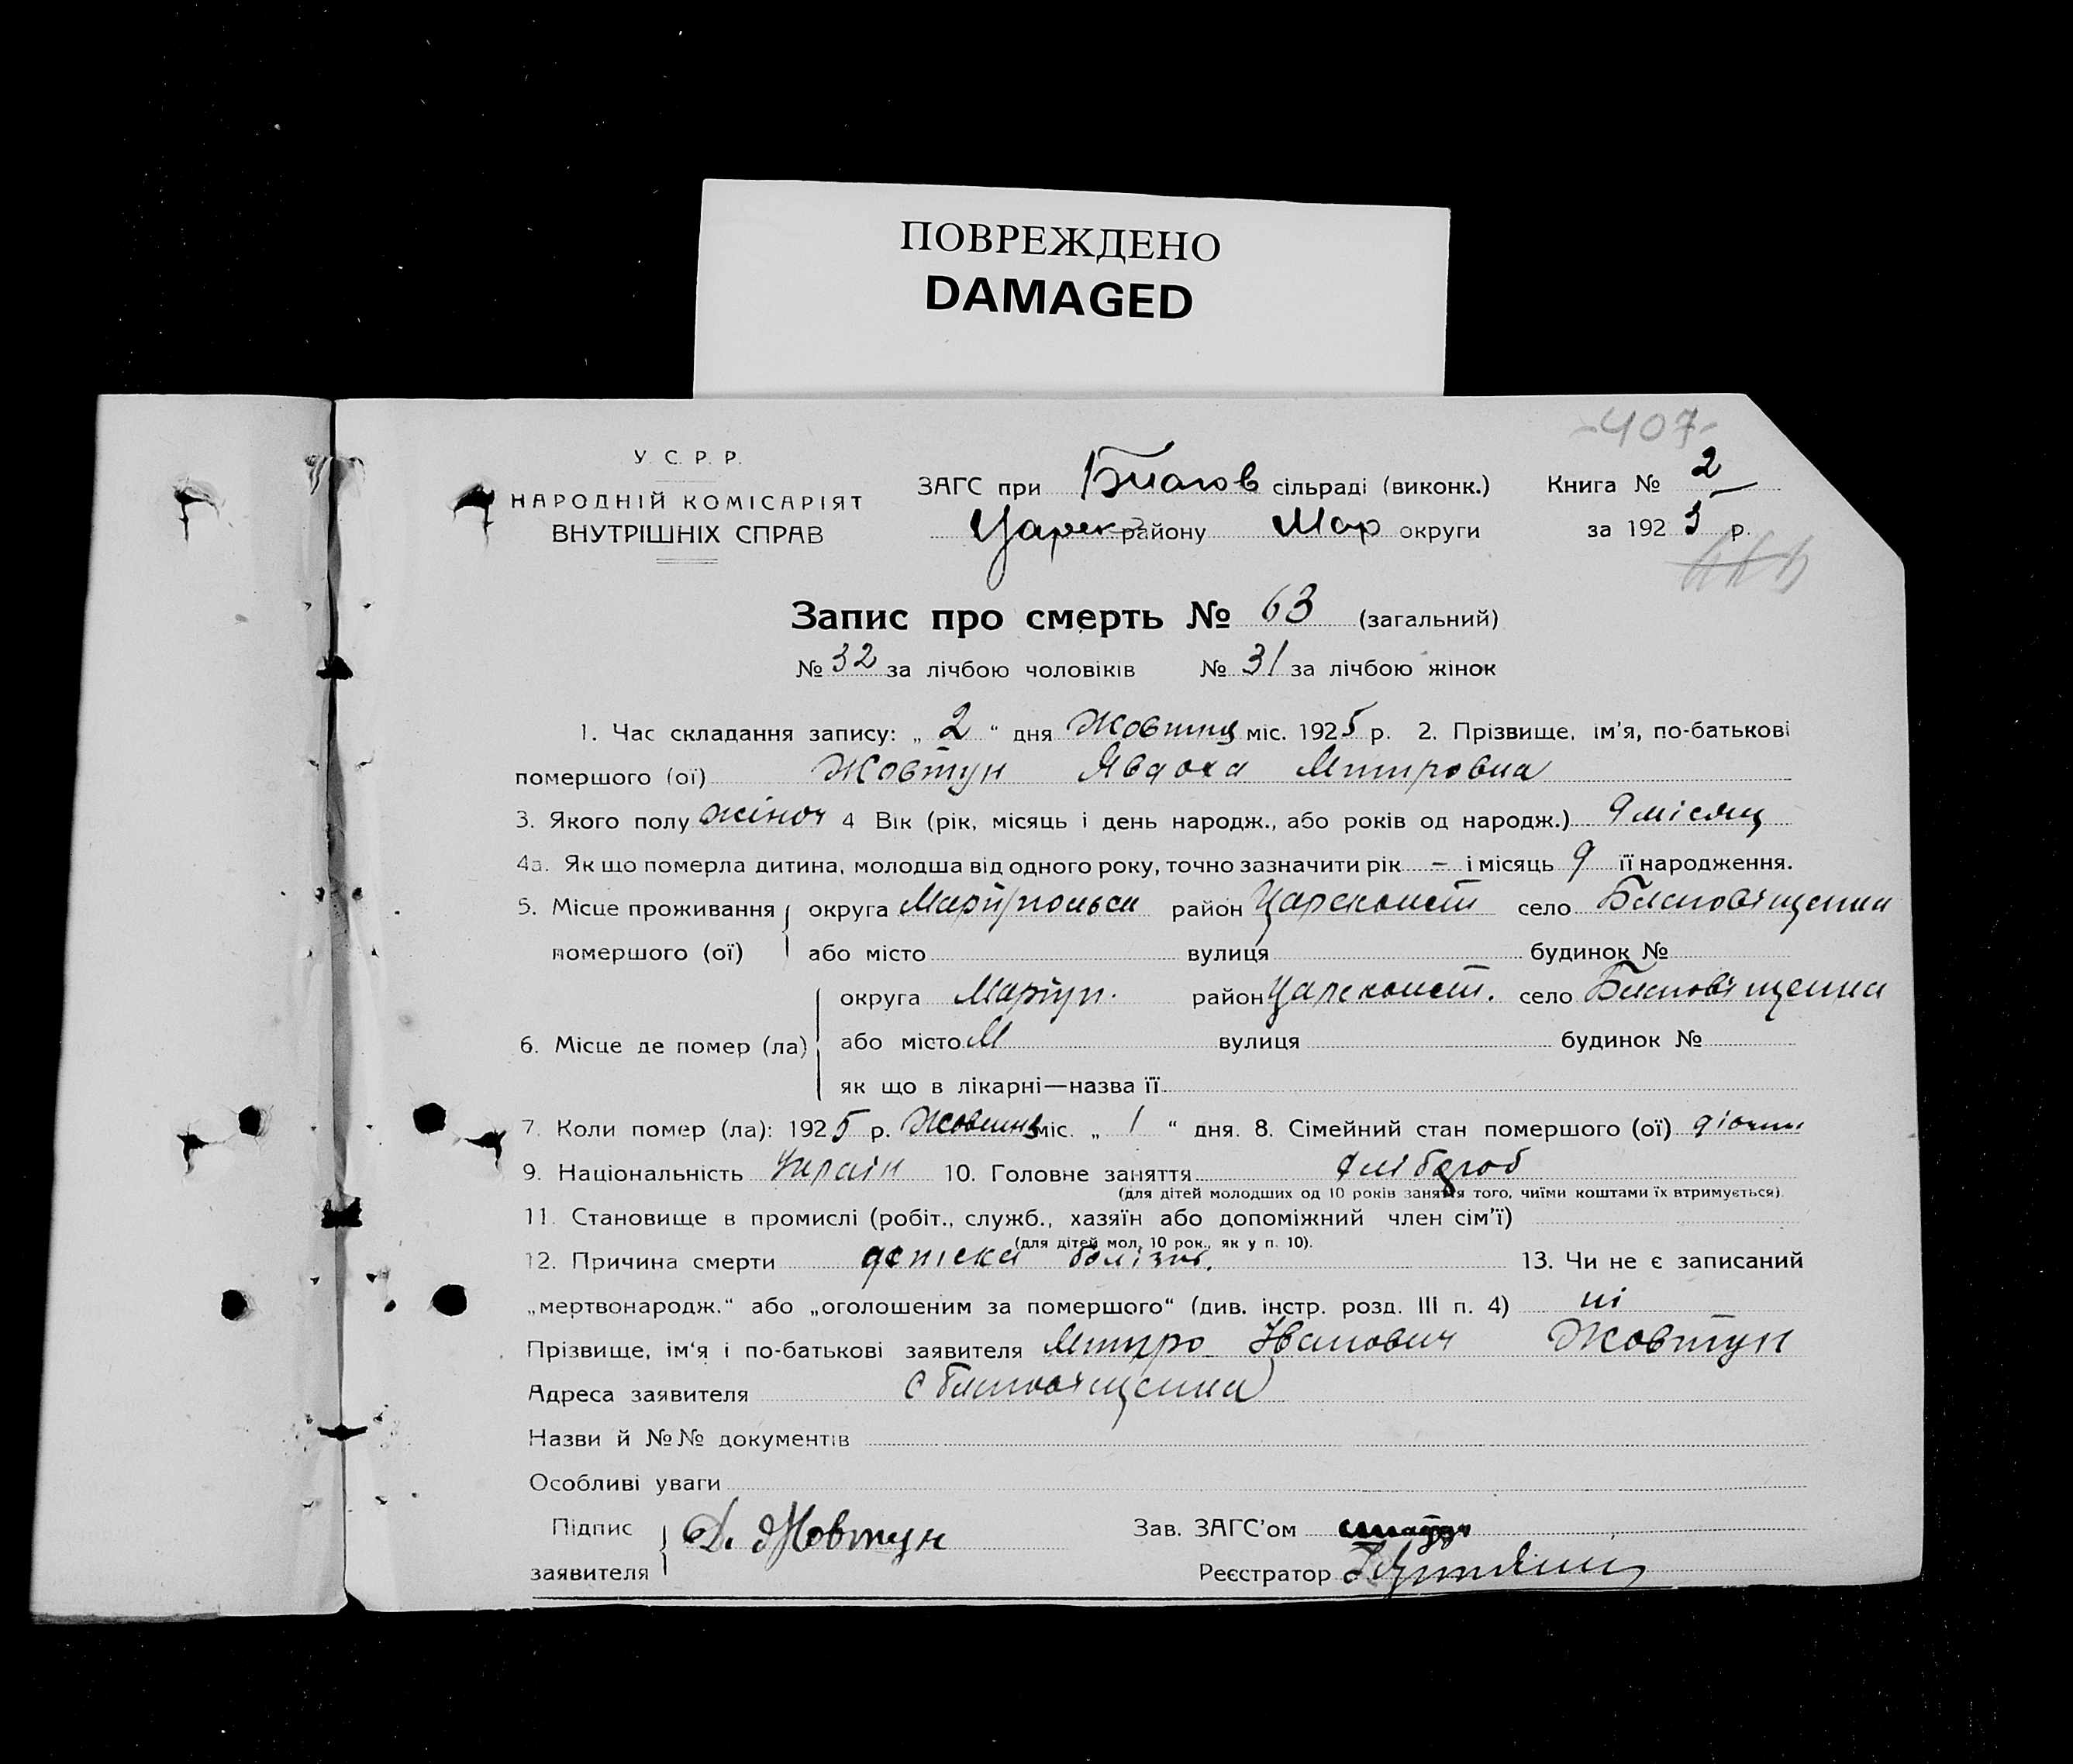 ПОВРЕЖДЕНО
DAMAGED
-407-
У. С. Р. Р.
НАРОДНІЙ КОМІСАРІЯТ
ВНУТРІШНІХ СПРАВ
ЗАГС при Благов сільраді (виконк.) Книга № 2
Царек району Мар округи за 1925 р.
Запис про смерть № 63 (загальний)
№ 32 за лічбою чоловіків № 31 за лічбою жінок
1. Час складання запису: „ 2 “ дня Жовтня міс. 1925 р. 2. Прізвище, ім'я, по-батькові
помершого (ої) Жовтун Явдоха Митровна
3. Якого полу жіноч 4 Вік (рік, місяць і день народж., або років од народж.) 9 місяц
4а. Як що померла дитина, молодша від одного року, точно зазначити рік – і місяць 9 її народження.
5. Місце проживання помершого (ої) округа Маріупольск район Цареконст село Благовіщенка
або місто вулиця будинок №
6. Місце де помер (ла) округа Маріуп. район Цареконст. село Благовіщенка
або місто М вулиця будинок №
як що в лікарні—назва її
7. Коли помер (ла): 1925 р. Жовтня міс. „ 1 “ дня. 8. Сімейний стан помершого (ої)
9. Національність Украін 10. Головне заняття хлібороб
(для дітей молодших од 10 років заняття того, чиїми коштами їх втримується)
11. Становище в промислі (робіт., служб., хазяїн або допоміжний член сім'ї)
(для дітей мол. 10 рок., як у п. 10).
12. Причина смерти детска болізнь. 13. Чи не є записаний
„мертвонародж.“ або „оголошеним за помершого“ (див. інстр. розд. III п. 4) ні
Прізвище, ім'я і по-батькові заявителя Митро Іванович Жовтун
Адреса заявителя с Благовіщенка
Назви й №№ документів
Особливі уваги
Підпис заявителя Д. Жовтун Зав. ЗАГС'ом
Реєстратор